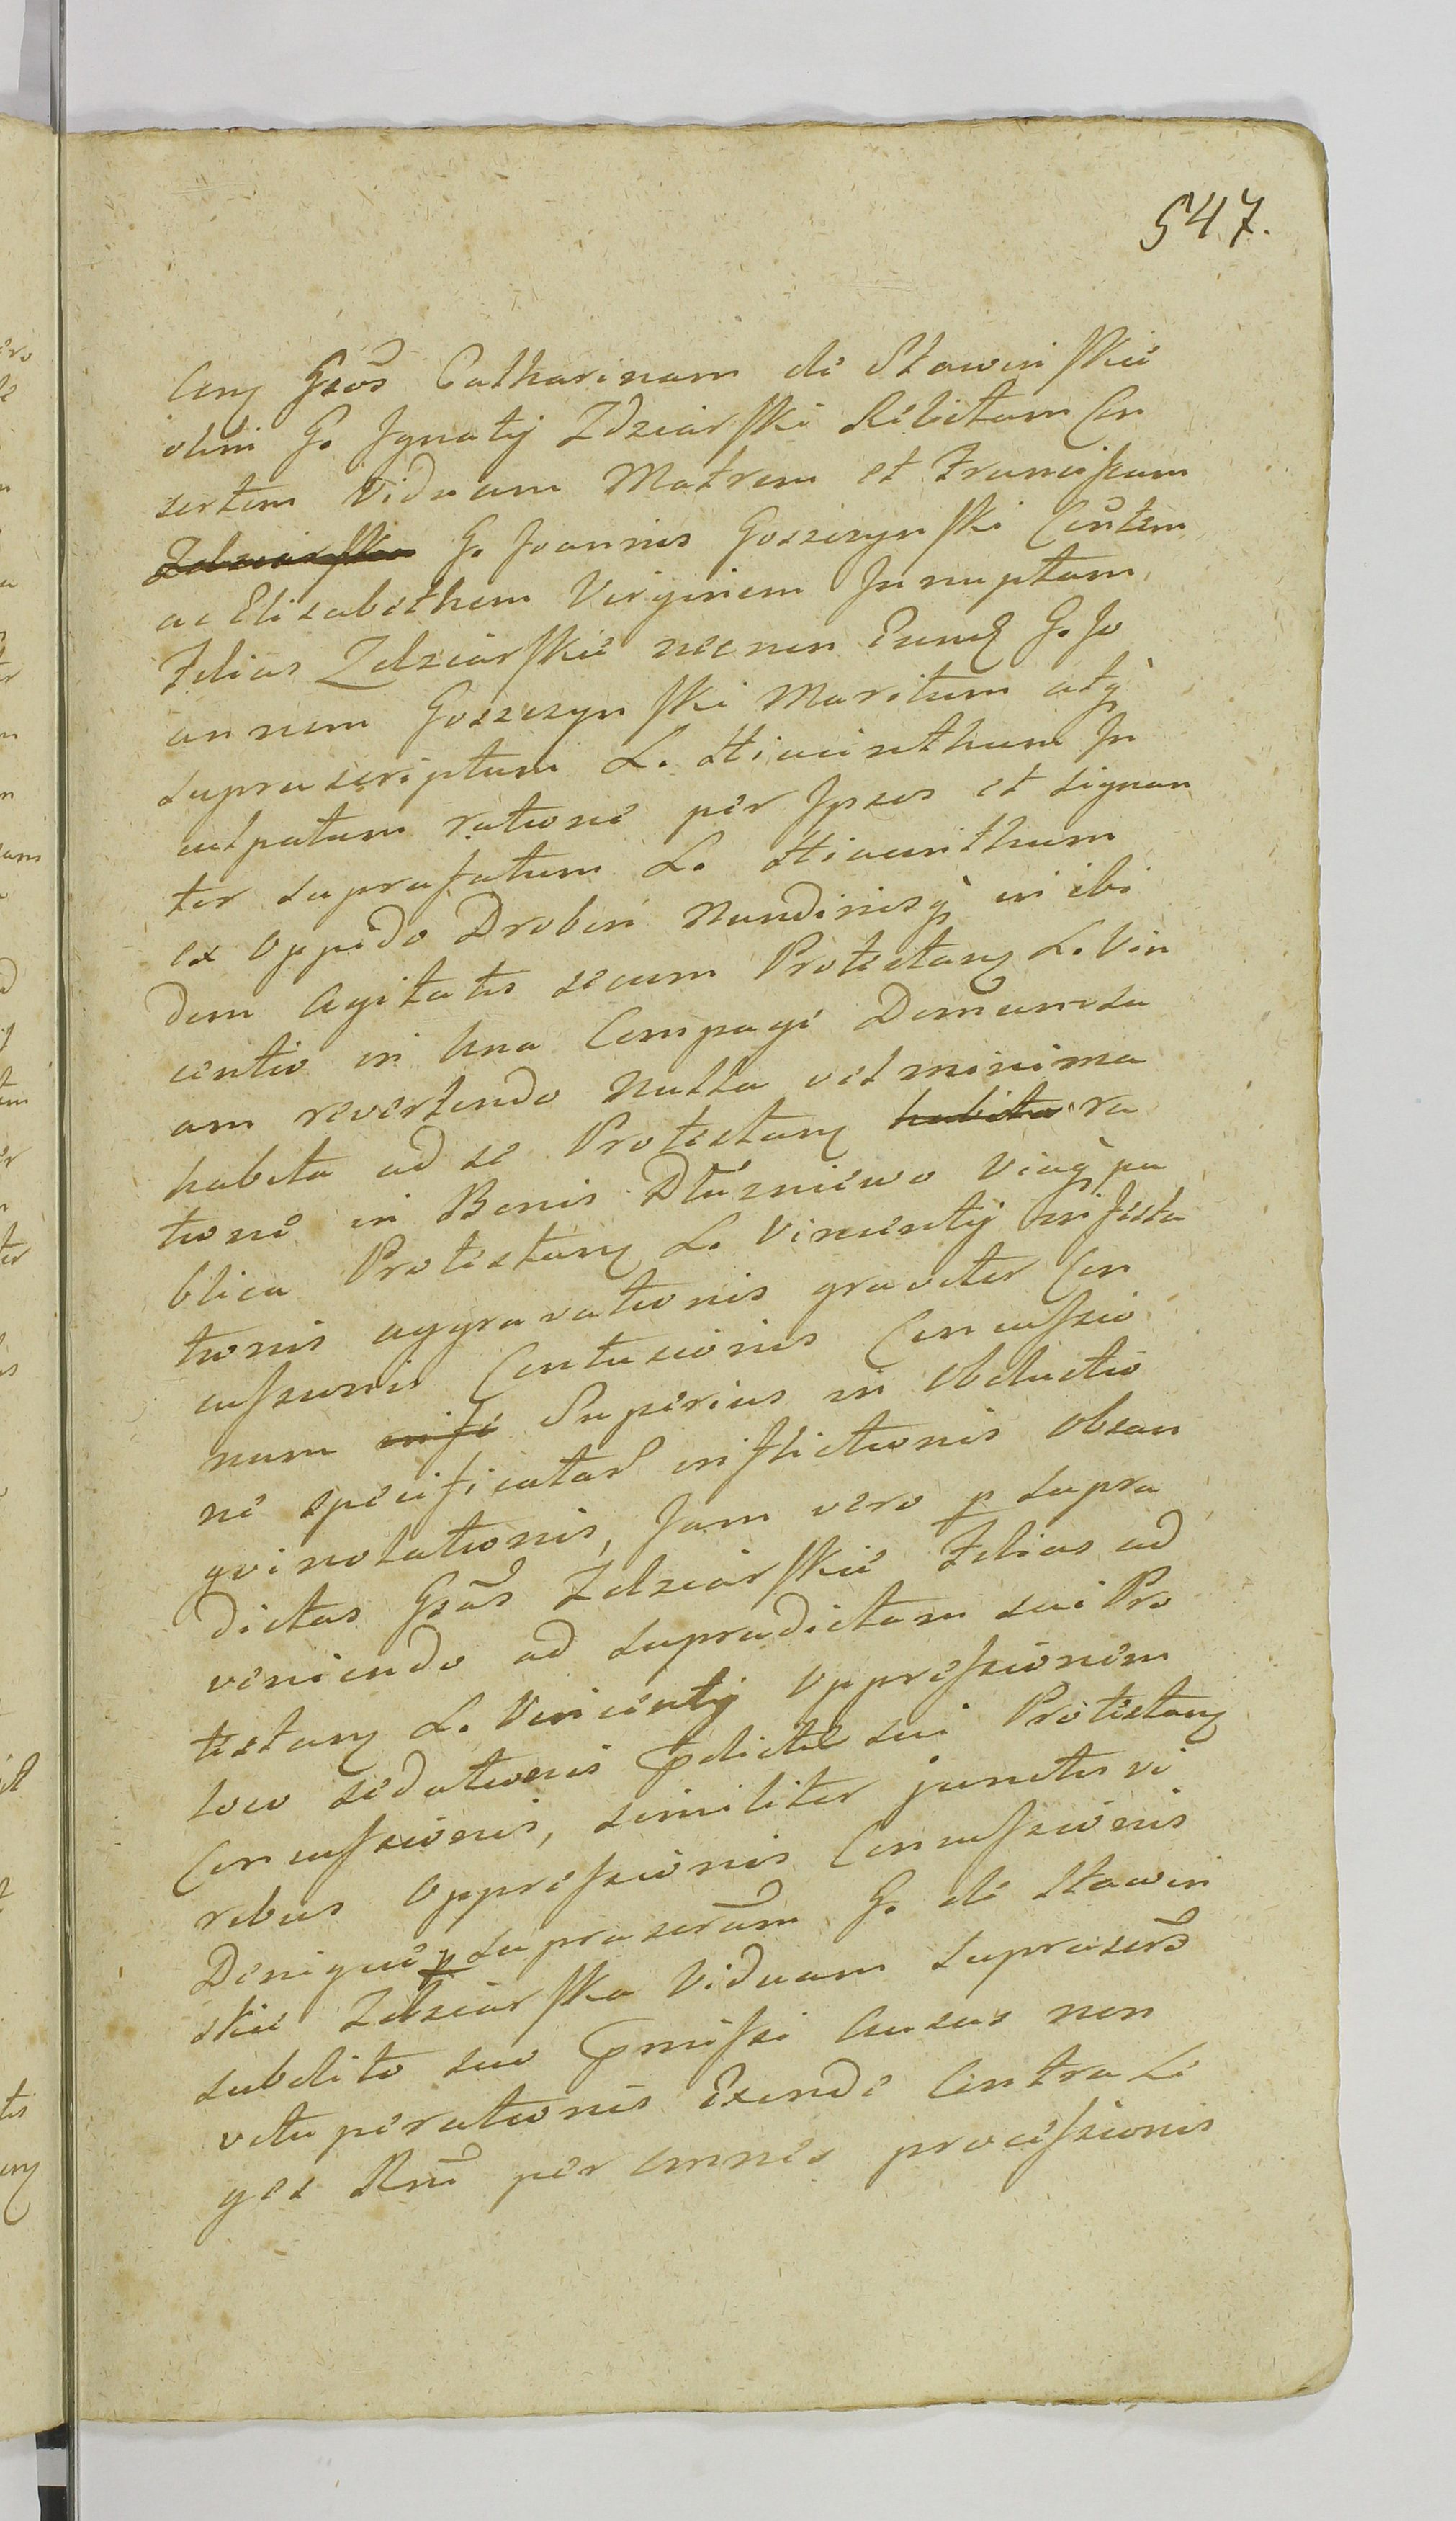 547.
Gsos Catharinam de Stawinskie
olim G. Ignatij Zdziarski Relictam Con
sortem Viduam Matrem et Franciscam
Zdziarska G. Joannis Goszczynski Contem
ac Elisabetham Virginem Innuptam
Filias Zdziarskie necnon Eund G. Jo
annem Goszczynski Maritum atq
suprascriptum L. Hiacinthum In
culpatum ratione per Ipsos et signan
ter suprafatum L. Hiacinthum
ex Oppido Drobin Nundinisq in ibi
dem Agitatis secum Protestanz L. Vin
centio in Una Compagi Domum su
am revertendo Nulla vel minima
habita ad se Protestanz habita ra
tione in Bonis Dłuzniewo Viaq pu
blica Protestanz L. Vincentij infesta
tionis aggravationis graviter Con
cussionis Contusionis Concussio
num infe Superius in Obductio
ne specificatar inflictionis Obsan
gvinolationis, Jam vero p supra
dictas Gsas Zdziarskie Filias ad
veniendo ad supradictam sui Pro
testanz L. Vincentij Oppressionem
loco sedationis pdicte sui Protestanz
Concussionis, similiter junctis vi
ribus Oppressionis Concussionis
Denique p suprascram G. de Stawin
skie Zdziarska Viduam suprascro
subdito suo pmissi Ausus non
vituperationis Exinde Contra Le
ges Rni per omnes processionis